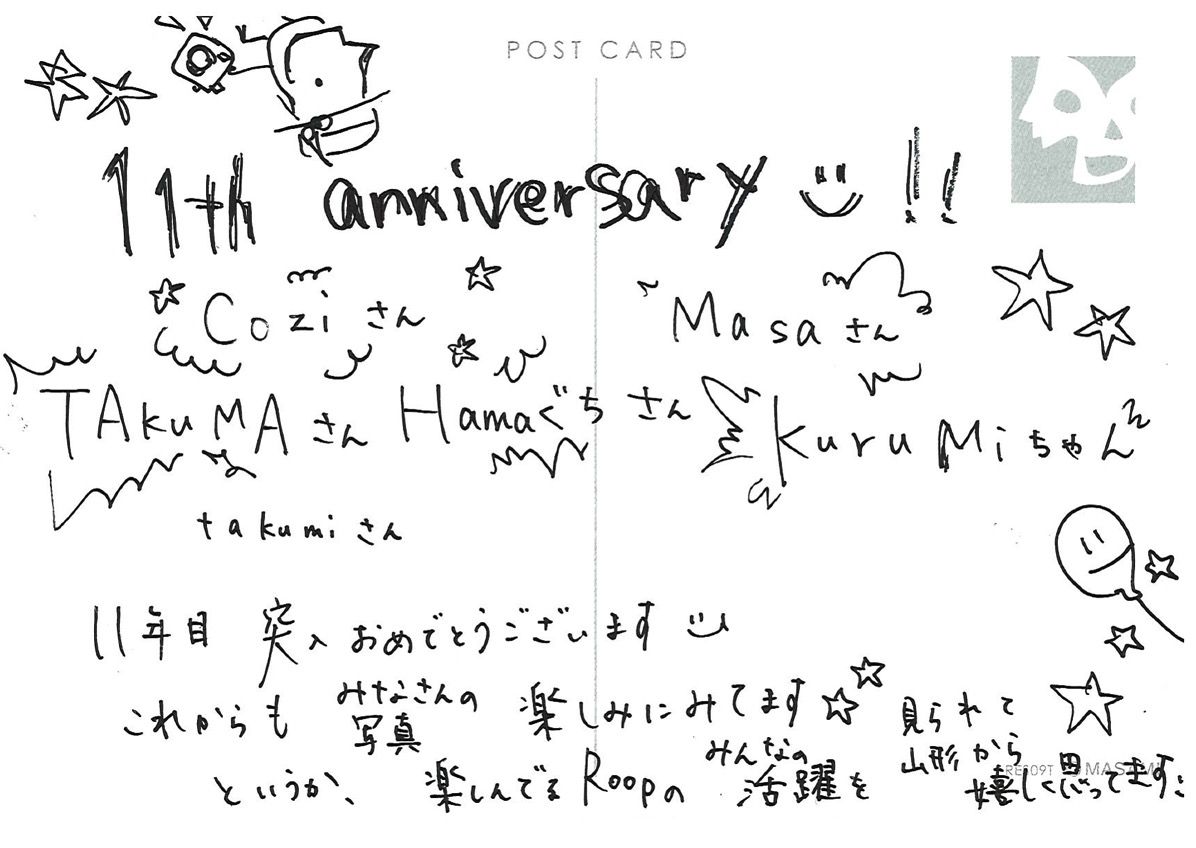 POST CARD
11th anniversary !!
Cozi さん Masa さん
TAkuMA さん Hamaぐち さん KuruMi ちゃん
takumi さん
11年目 突入 おめでとうございます
これからも みなさんの写真 楽しみにみてます
というか、 楽しんでる Roopの みんなの活躍を 見られて
山形から 嬉しく思ってます
MASAMI